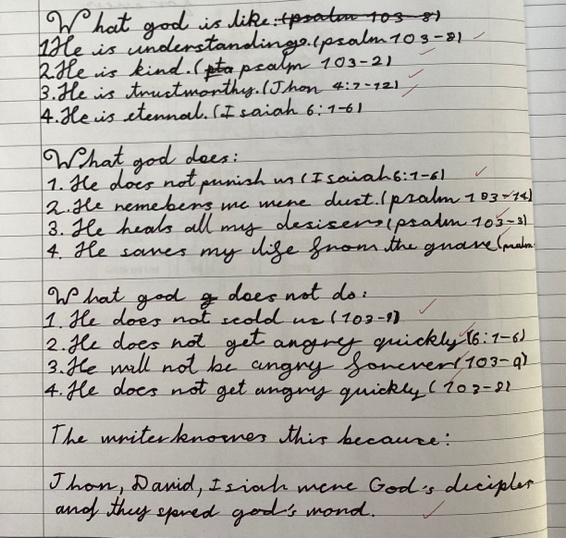 What god is like: (psalm 103-8)
1. He is understanding. (psalm 103-8)
2. He is kind. (pta psalm 103-2)
3. He is trustworthy. (Jhon 4:7-12)
4. He is eternal. (Isaiah 6:1-6)
What god does:
1. He does not punish us (Isaiah 6:1-6)
2. He remebers we were dust. (psalm 103-14)
3. He heals all my desisers (psalm 103-3)
4. He saves my life from the grave (psalm
What god g does not do:
1. He does not scold us (103-9)
2. He does not get angrey quickly (6:1-6)
3. He will not be angry forever (103-9)
4. He does not get angry quickly (103-8)
The writer knowes this because:
Jhon, David, Isiah were God's deciples
and they spred god's word.